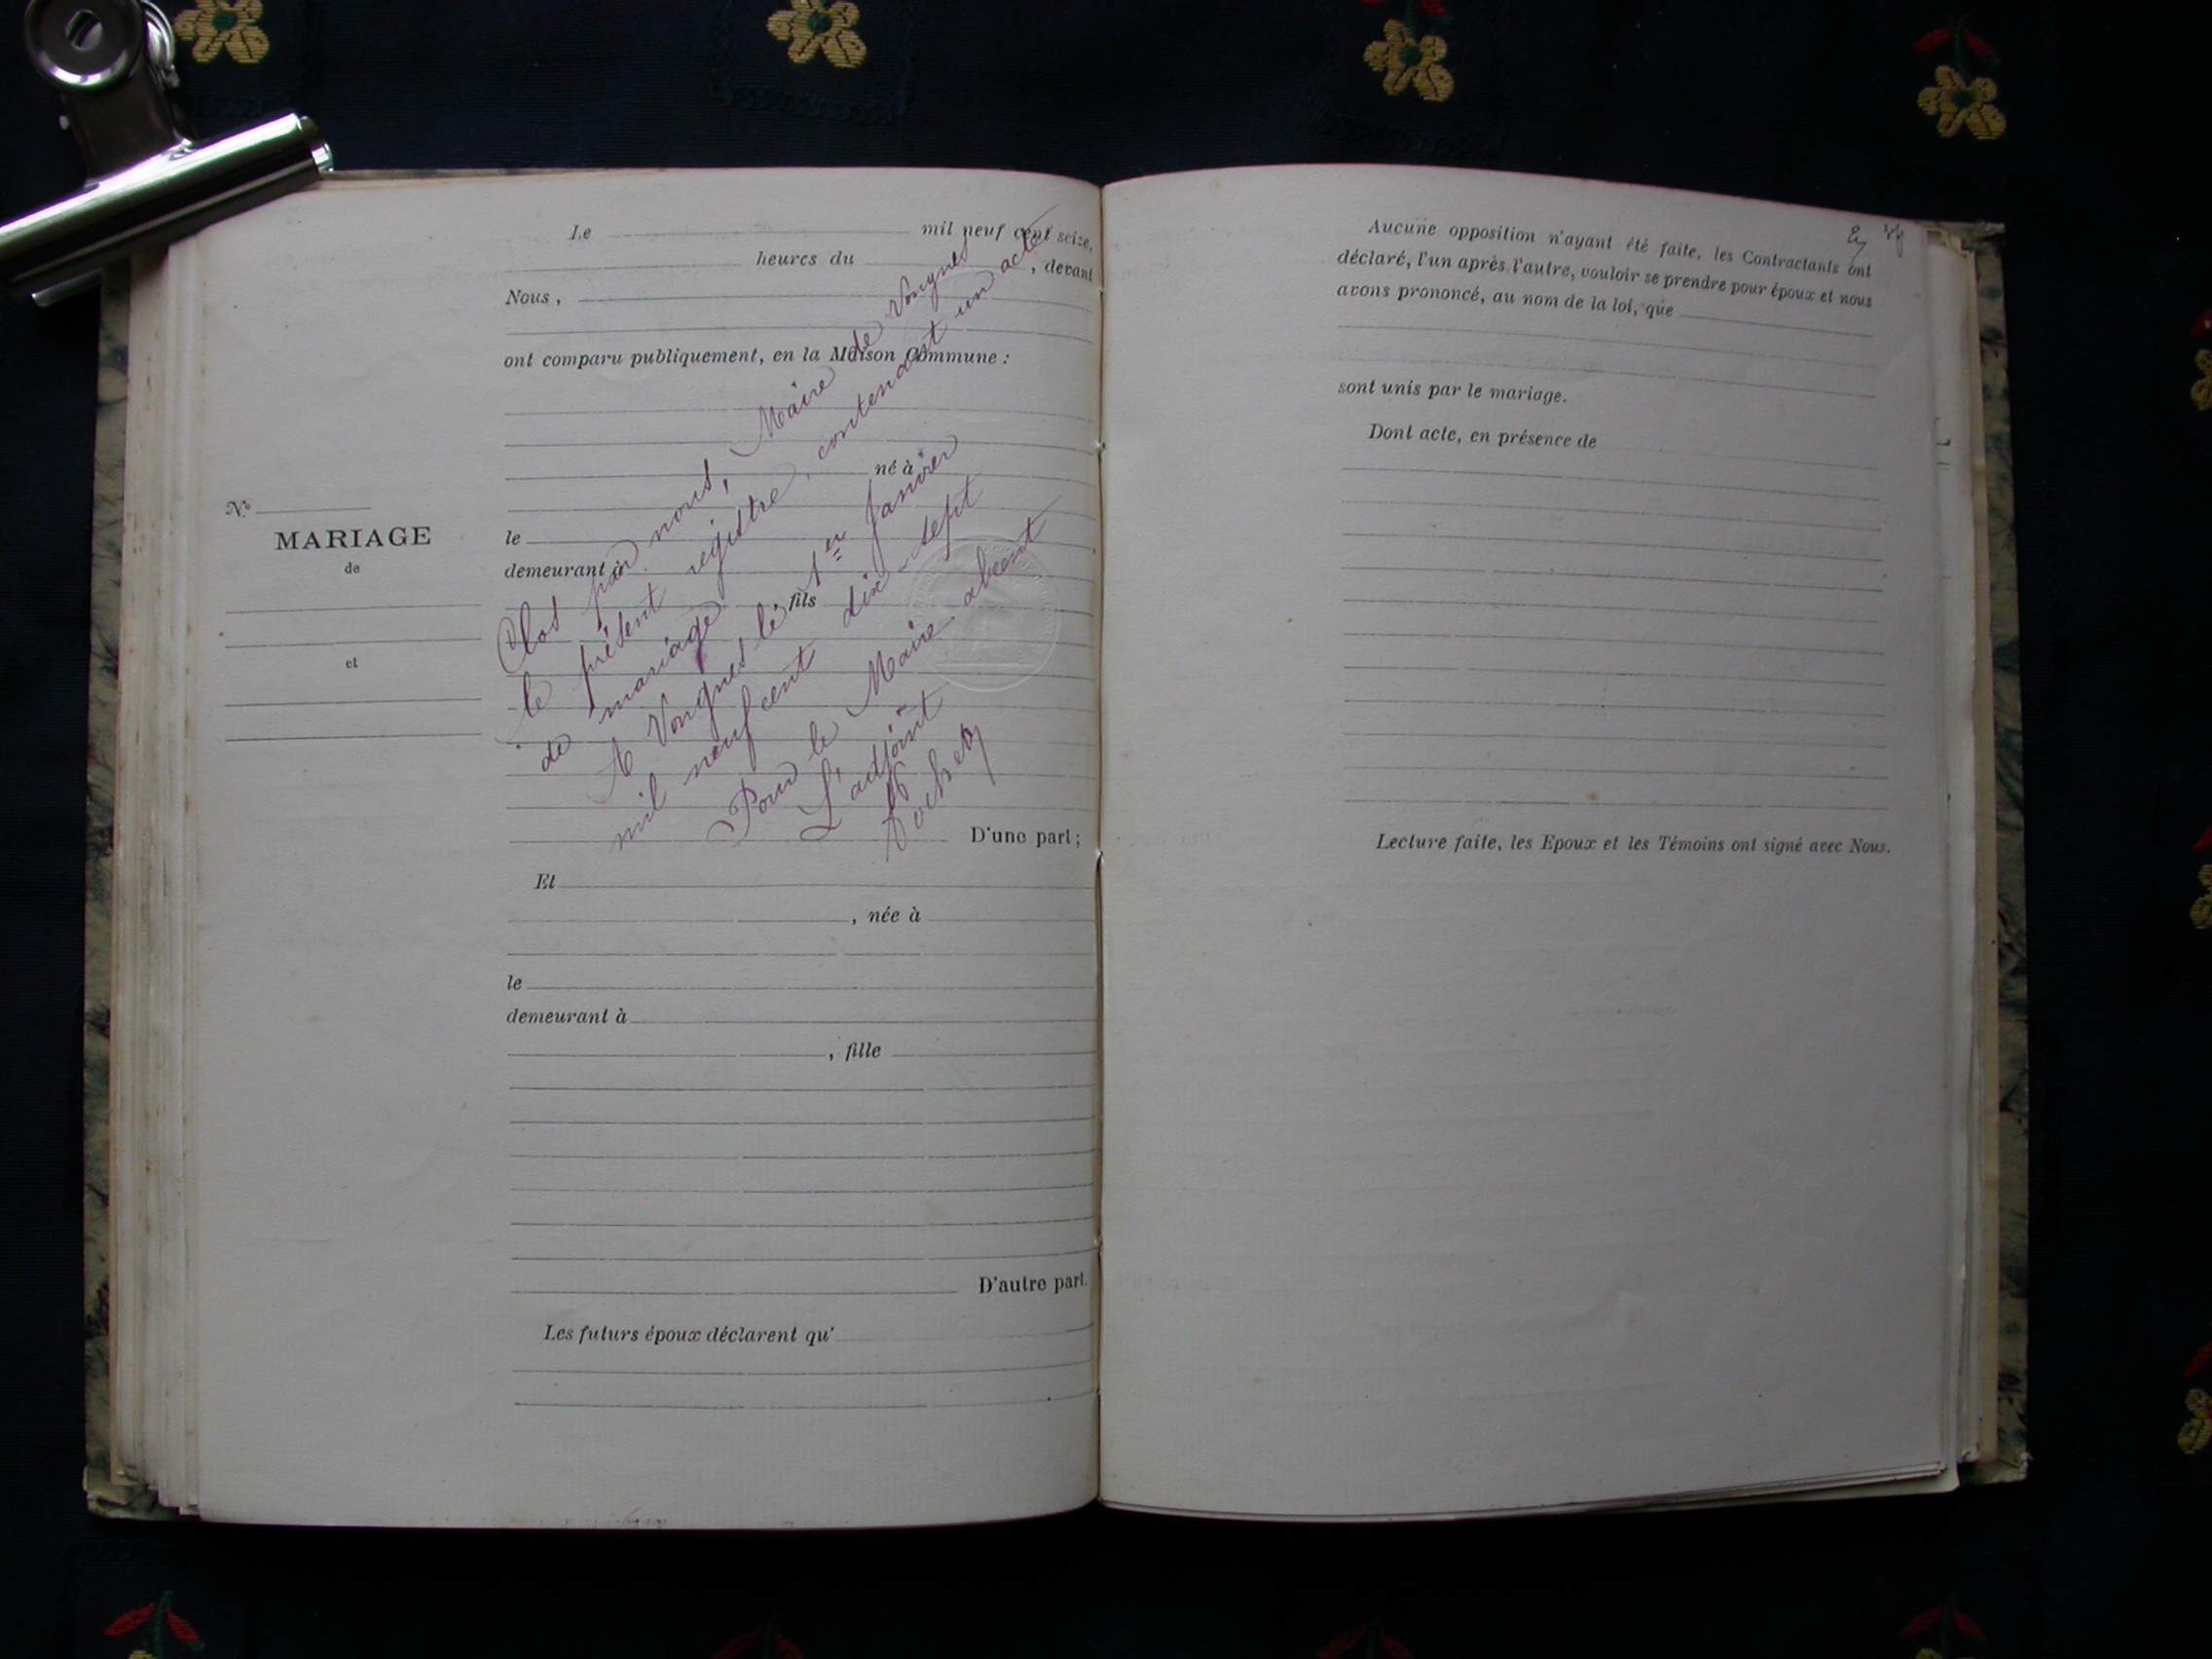 Le mil neuf cent seize,
heures du , devant
Nous,
ont comparu publiquement, en la Maison Commune :
né à
le
demeurant à
, fils
D'une part;
Et
, née à
le
demeurant à
, fille
D'autre part.
Les futurs époux déclarent qu'
N°
MARIAGE
de
et
Clos par nous, Maire de Vongnes
le présent registre, contenant un acte
de mariage
A Vongnes le 1er Janvier
mil neuf cent dix-sept
Pour le Maire absent
L'adjoint
Aucune opposition n'ayant été faite, les Contractants ont
déclaré, l'un après l'autre, vouloir se prendre pour époux et nous
avons prononcé, au nom de la loi, que
sont unis par le mariage.
Dont acte, en présence de
Lecture faite, les Epoux et les Témoins ont signé avec Nous.